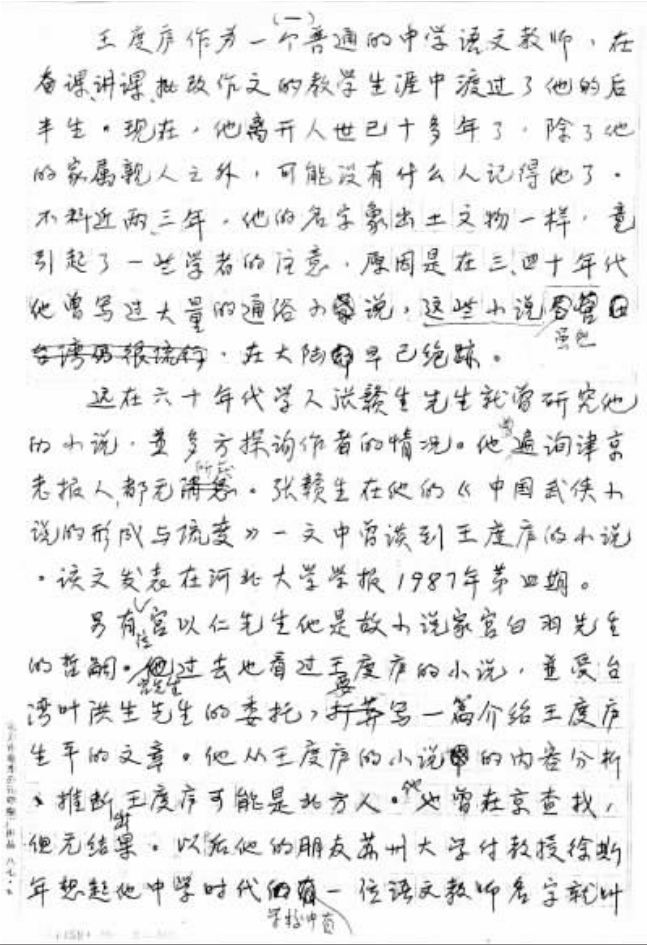 (一)
王度庐作为一个普通的中学语文教师，在
备课、讲课、批改作文的教学生涯中渡过了他的后
半生。现在，他离开人世已十多年了，除了他
的家属亲人之外，可能没有什么人记得他了。
不料近两、三年，他的名字象出土文物一样，竟
引起了一些学者的注意，原因是在三、四十年代
他曾写过大量的通俗小说，这些小说
虽也
台湾仍很流行，在大陆却早已绝跡。
远在六十年代学人张赣生先生就曾研究他
的小说，並多方探询作者的情况。他遍询津京
老报人都无所知。张赣生在他的《中国武侠小
说的形成与流变》一文中曾谈到王度庐的小说
。该文发表在河北大学学报1987年第四期。
另有位宫以仁先生他是故小说家宫白羽先生
的哲嗣。宫先生过去也看过王度庐的小说，並受台
湾叶洪生先生的委托，要写一篇介绍王度庐
生平的文章。他从王度庐的小说的内容分析
、推断出王度庐可能是北方人。他也曾在京查找，
但无结果。以后他的朋友苏州大学付教授徐斯
年想起他中学时代的学校中有一位语文教师名字就叫